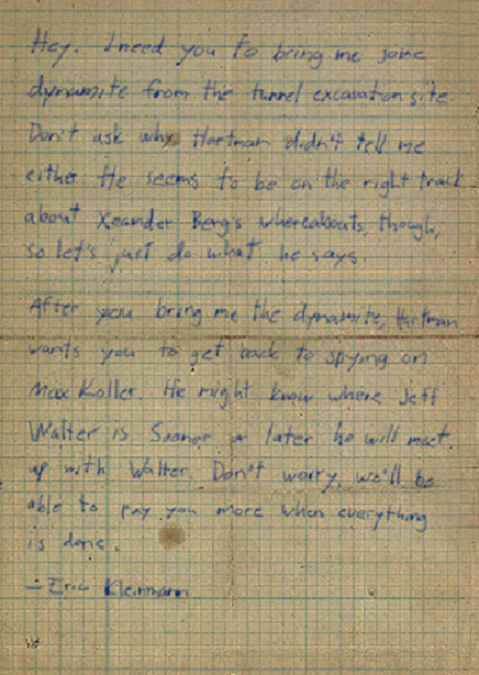 Hey. I need you to bring me some
dynamite from the tunnel excavation site.
Don't ask why. Hartman didn't tell me
either. He seems to be on the right track
about Xeander Berg's whereabouts, though,
so let's just do what he says.
After you bring me the dynamite, Hartman
wants you to get back to spying on
Max Koller. He might know where Jeff
Walter is. Sooner or later he will meet
up with Walter. Don't worry, we'll be
able to pay you more when everything
is done.
- Eric Kleinmann